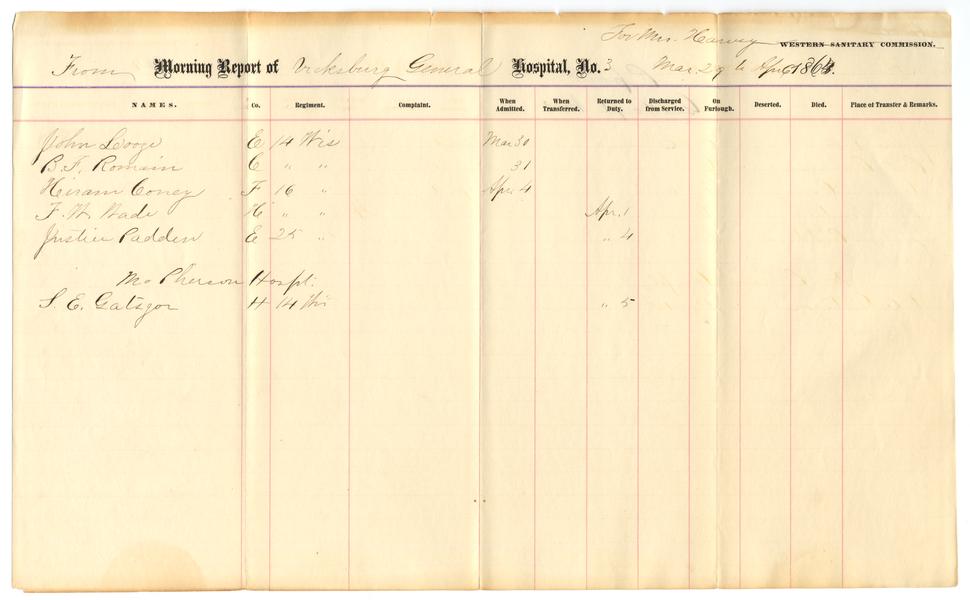 For Mrs. Harvey WESTERN SANITARY COMMISSION.
From Morning Report of Vicksburg General Hospital, No. 3 Mar. 29 to Apr. 186
NAMES. Co. Regiment. Complaint. When Admitted. When Transferred. Returned to Duty. Discharged from Service. On Furlough. Deserted. Died. Place of Transfer & Remarks.
John E 14 Wis Mar 30
B. F. Romain C " " 31
Hiram Coney F 16 " Apr. 4
F. W. Wade H " " Apr. 1
Justice Padden E 25 " " 4
McPherson Hospt.
S E. Gatsgor H 14 Wis " 5